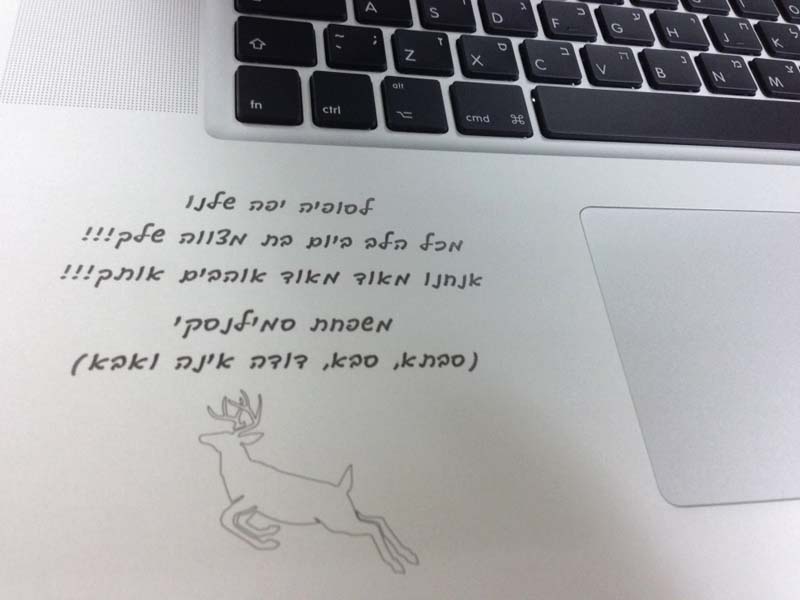 A S D ג F כ G ע H י J ח K ל
~ ; Z ז X ס C ב V ה B נ N מ M צ
fn ctrl alt ⌥ cmd ⌘
לסופיה יפה שלנו
מכל הלב ביום בת מצווה שלק!!!
אנחנו מאוד מאוד אוהבים אותק!!!
משפחת סמילנסקי
(סבתא, סבא, דודה אינה ואבא)